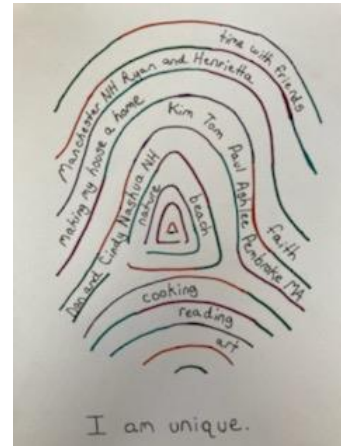 time with friends
Manchester NH Ryan and Henrietta
making my house a home
Kim Tom Paul Ashlee Pembroke MA
faith
Don and Cindy Nashua NH
nature
beach
cooking
reading
art
I am unique.